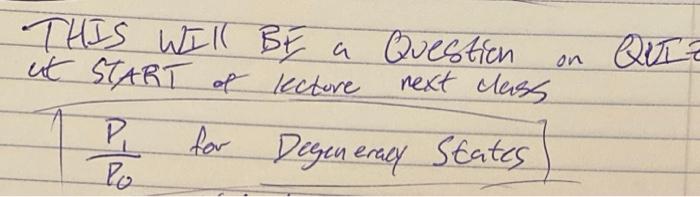 THIS WILL BE a Question on QUIZ
at START of lecture next class
P₁/P₀ for Degeneracy States